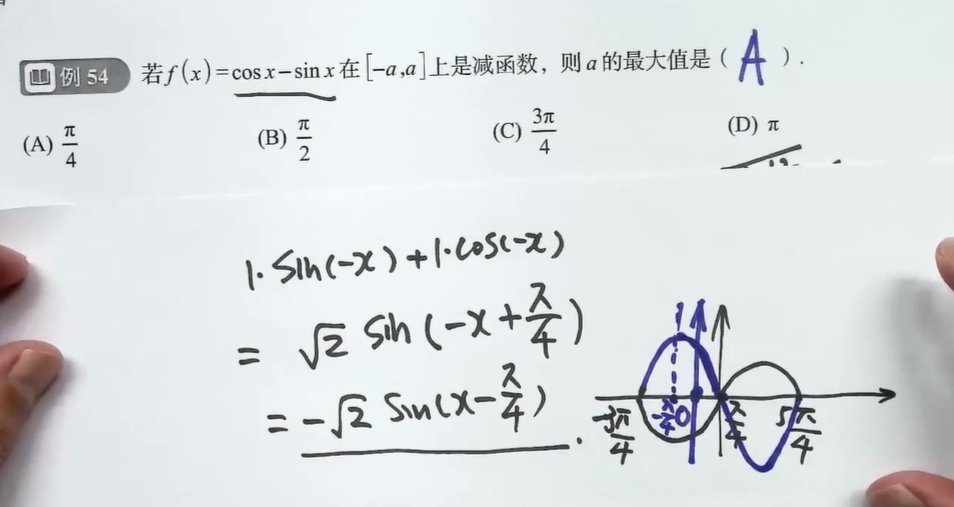 例 54 若f(x)=cosx−sinx在[−a,a]上是减函数，则a的最大值是（ A ）.
(A) π/4 (B) π/2 (C) 3π/4 (D) π
1·Sin(−x)+1·cos(−x)
= √2 Sin(−x+π/4)
= −√2 Sin(x−π/4).
−3π/4 −π/4 0 π/4 5π/4